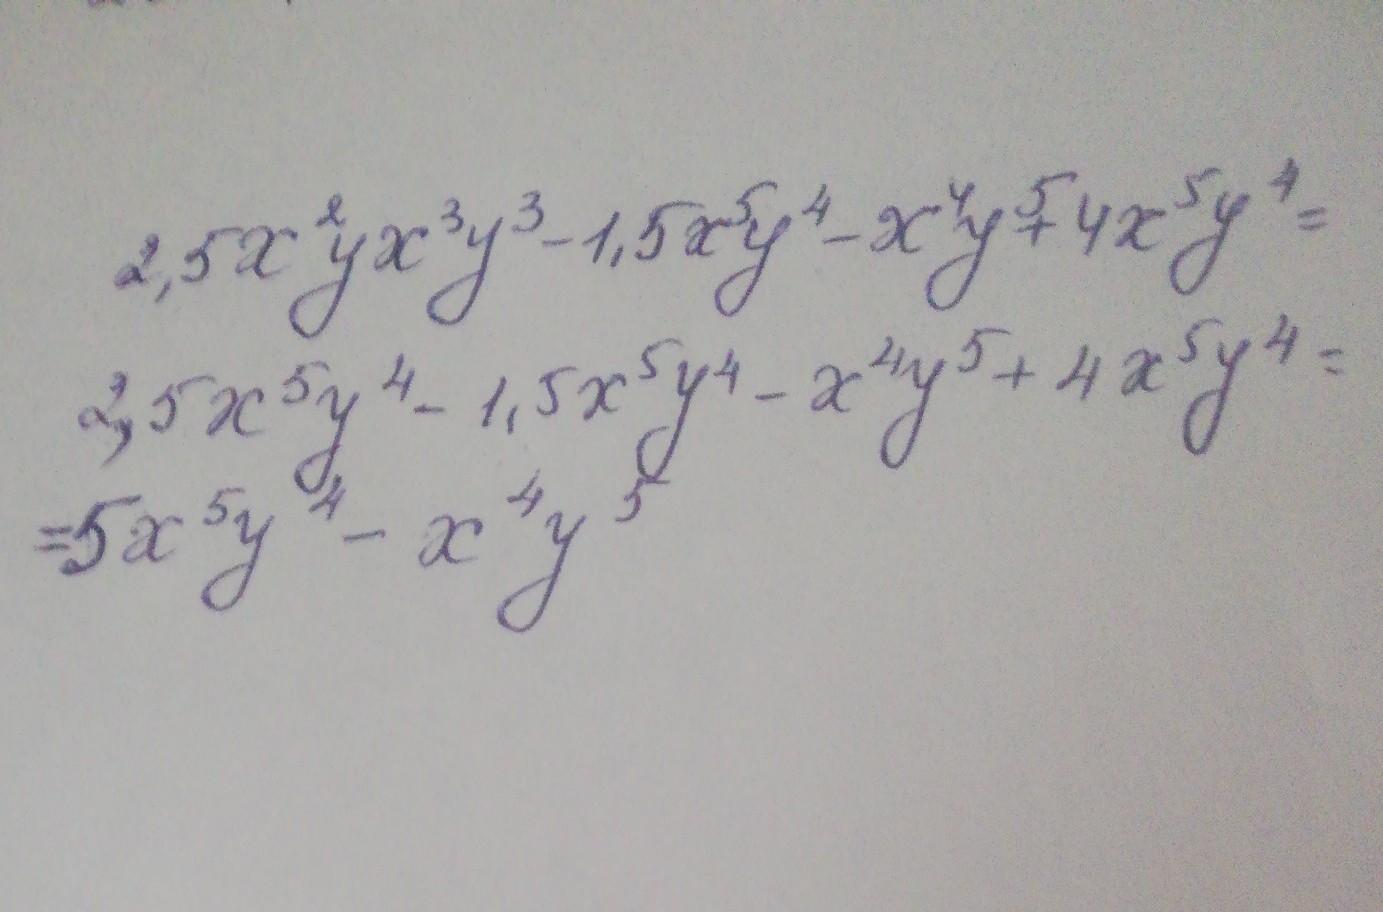 2,5x²yx³y³-1,5x⁵y⁴-x⁴y⁵+4x⁵y⁴=
2,5x⁵y⁴-1,5x⁵y⁴-x⁴y⁵+4x⁵y⁴=
=5x⁵y⁴-x⁴y⁵